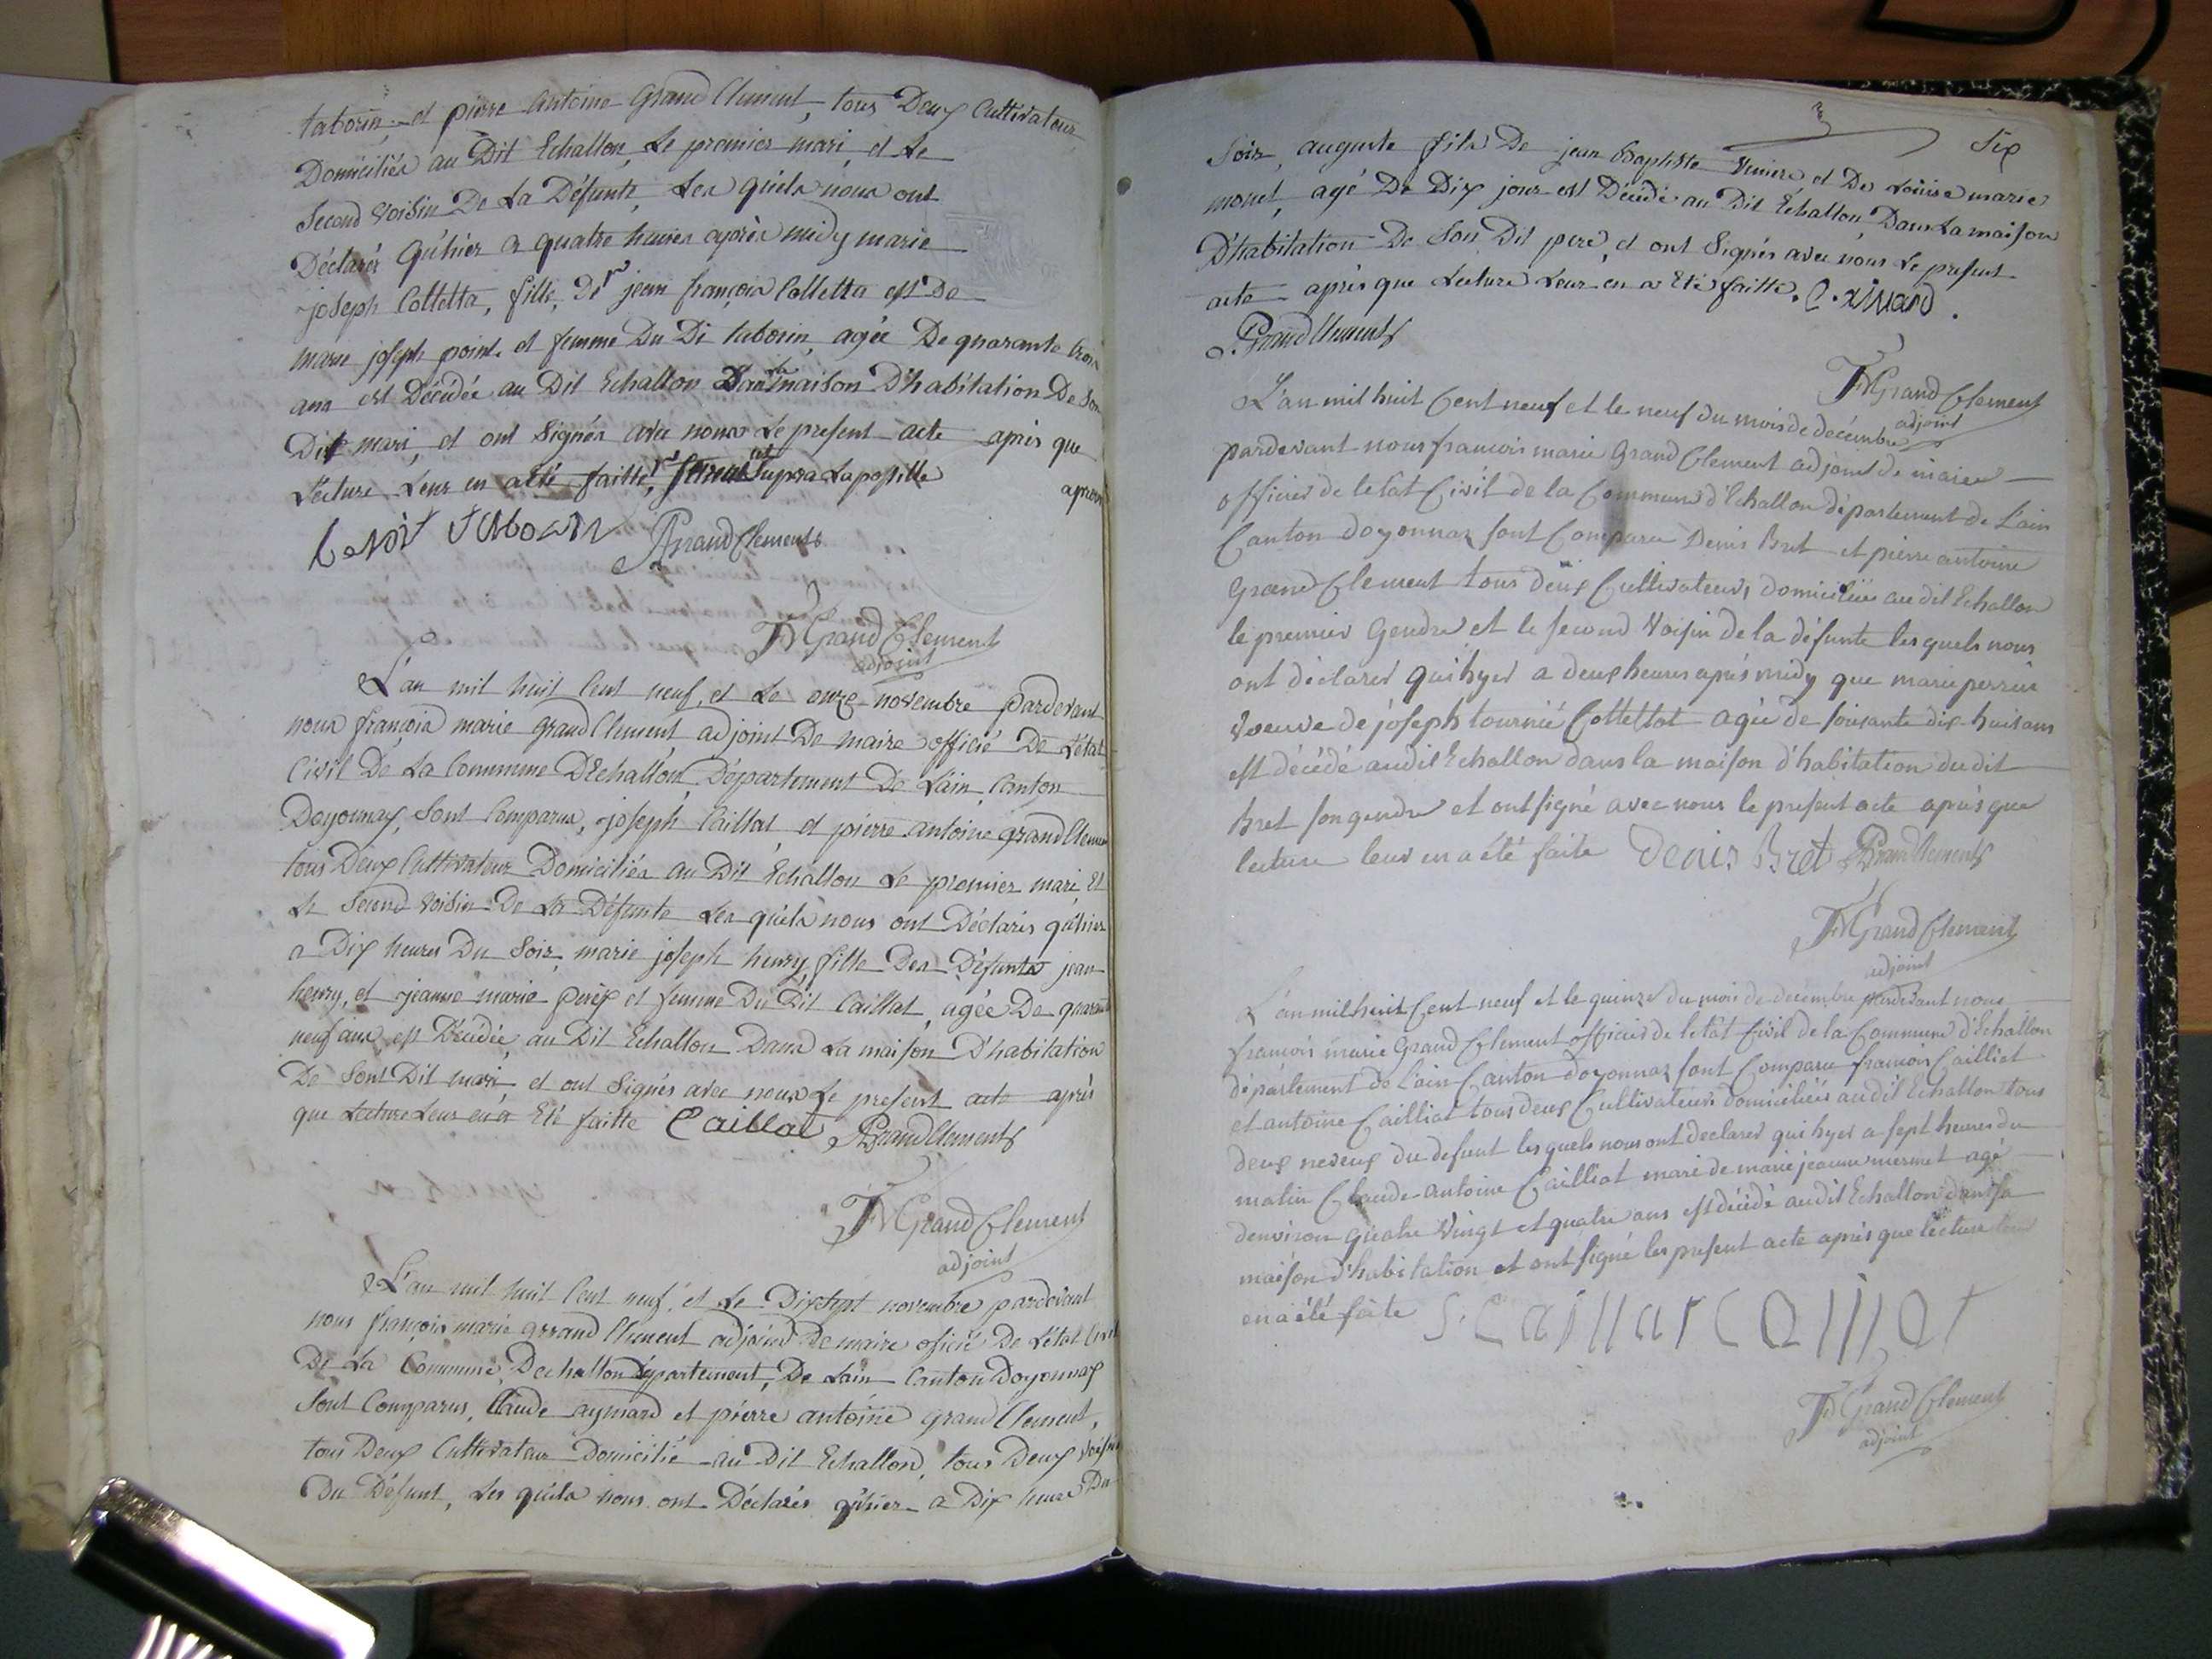 taborin, et pierre antoine Grand Clement, tous Deux Cultivateur
Domiciliés au Dit Echallon, Le premier mari, et Le
Second voisin De La Défunte, Les quels nous ont
Déclarér qu'hier a quatre heures après midy marie
joseph Colletta, fille, De jean françois Colletta et De
marie joseph point et femme Du Di taborin, agée De quarante trois
ans est Décédée au Dit Echallon Dans la maison D'habitation De Son
Dit mari, et ont Signés avec nous Le present acte après que
Lecture Leur en a été faitte, supra Lapostille
Benoit taborin PAGrandClement
FMGrand Clement
adjoint
L'an mil huit Cent neuf, et Le onze novembre pardevant
nous françois marie grand Clement adjoint De maire officié De L'état
Civil De La Commune D'Echallon, Département De L'ain, Canton
Doyonnax, Sont Comparus, joseph Caillat et pierre antoine grand Clement
tous Deux Cultivateur Domiciliés au Dit Echallon Le premier mari, Et
Le Second voisin De La Défunte Les quels nous ont Déclarés qu'hier
a Dix heures Du Soir, marie joseph henry, fille Des Défunts jean
henry, et jeanne marie et femme Du Dit Caillat, agée De quarante
neuf ans, est Décédée, au Dit Echallon Dans La maison D'habitation
De Sont Dit mari, et ont Signés avec nous Le present acte après
que Lecture Leur en a Eté faitte Caillat PAGrandClement
FMGrand Clement
adjoint
L'an mil huit Cent neuf, et Le Dixsept novembre pardevant
nous françois marie grand Clement adjoint De maire oficié De L'état Civil
De La Commune, Dechallon Département, De Lain Canton Doyonnax
Sont Comparus, Claude aymard et pierre antoine grand Clement,
tous Deux Cultivateur Domicilié au Dit Echallon, tous Deux voisin
Du Défunt, Les quels nous ont Déclarés qu'hier a Dix heure Du
Six
Soir, auguste fils De jean Baptiste et De Louise marie
monet, agé De Dix jour est Décédé au Dit Echallon, Dans La maison
D'habitation De Son Dit pere, et ont Signés avec nous Le present
acte après que Lecture Leur en a Eté faitte.
PAGrandClement
FMGrand Clement
adjoint
L'an mil huit Cent neuf et le neuf du mois de decembre
pardevant nous francois marie Grand Clement adjoint de maire
officier de letat Civil de la Commune d'Echallon département de L'ain
Canton doyonnax sont Comparu Denis Bret et pierre antoine
Grand Clement tous deux Cultivateurs domiciliés au dit Echallon
le premier Gendre et le second Voisin de la défunte lesquels nous
ont déclarer qui hyer a deux heures après midy que marie perrin
Veuve de joseph tournié Collettat agée de soixante dix huit ans
est décédé au dit Echallon dans la maison d'habitation du dit
Bret son gendre et ont signé avec nous le present acte après que
lecture leur en a été faite Denis Bret PAGrandClement
FMGrand Clement
adjoint
L'an mil huit Cent neuf et le quinze du mois de decembre pardevant nous
francois marie Grand Clement officier de letat Civil de la Commune d'Echallon
département de L'ain Canton doyonnax sont Comparu francois Cailliat
et antoine Cailliat tous deux Cultivateurs domiciliés au dit Echallon tous
deux neveux du defunt lesquels nous ont declarer qui hyer a sept heures du
matin Claude antoine Cailliat mari de marie jeanne mermet agé
denviron quatre Vingt et quatre ans est décédé au dit Echallon dans sa
maison d'habitation et ont signé les present acte après que lecture leur
en a été faite f. Caillat Caillat
FMGrand Clement
adjoint